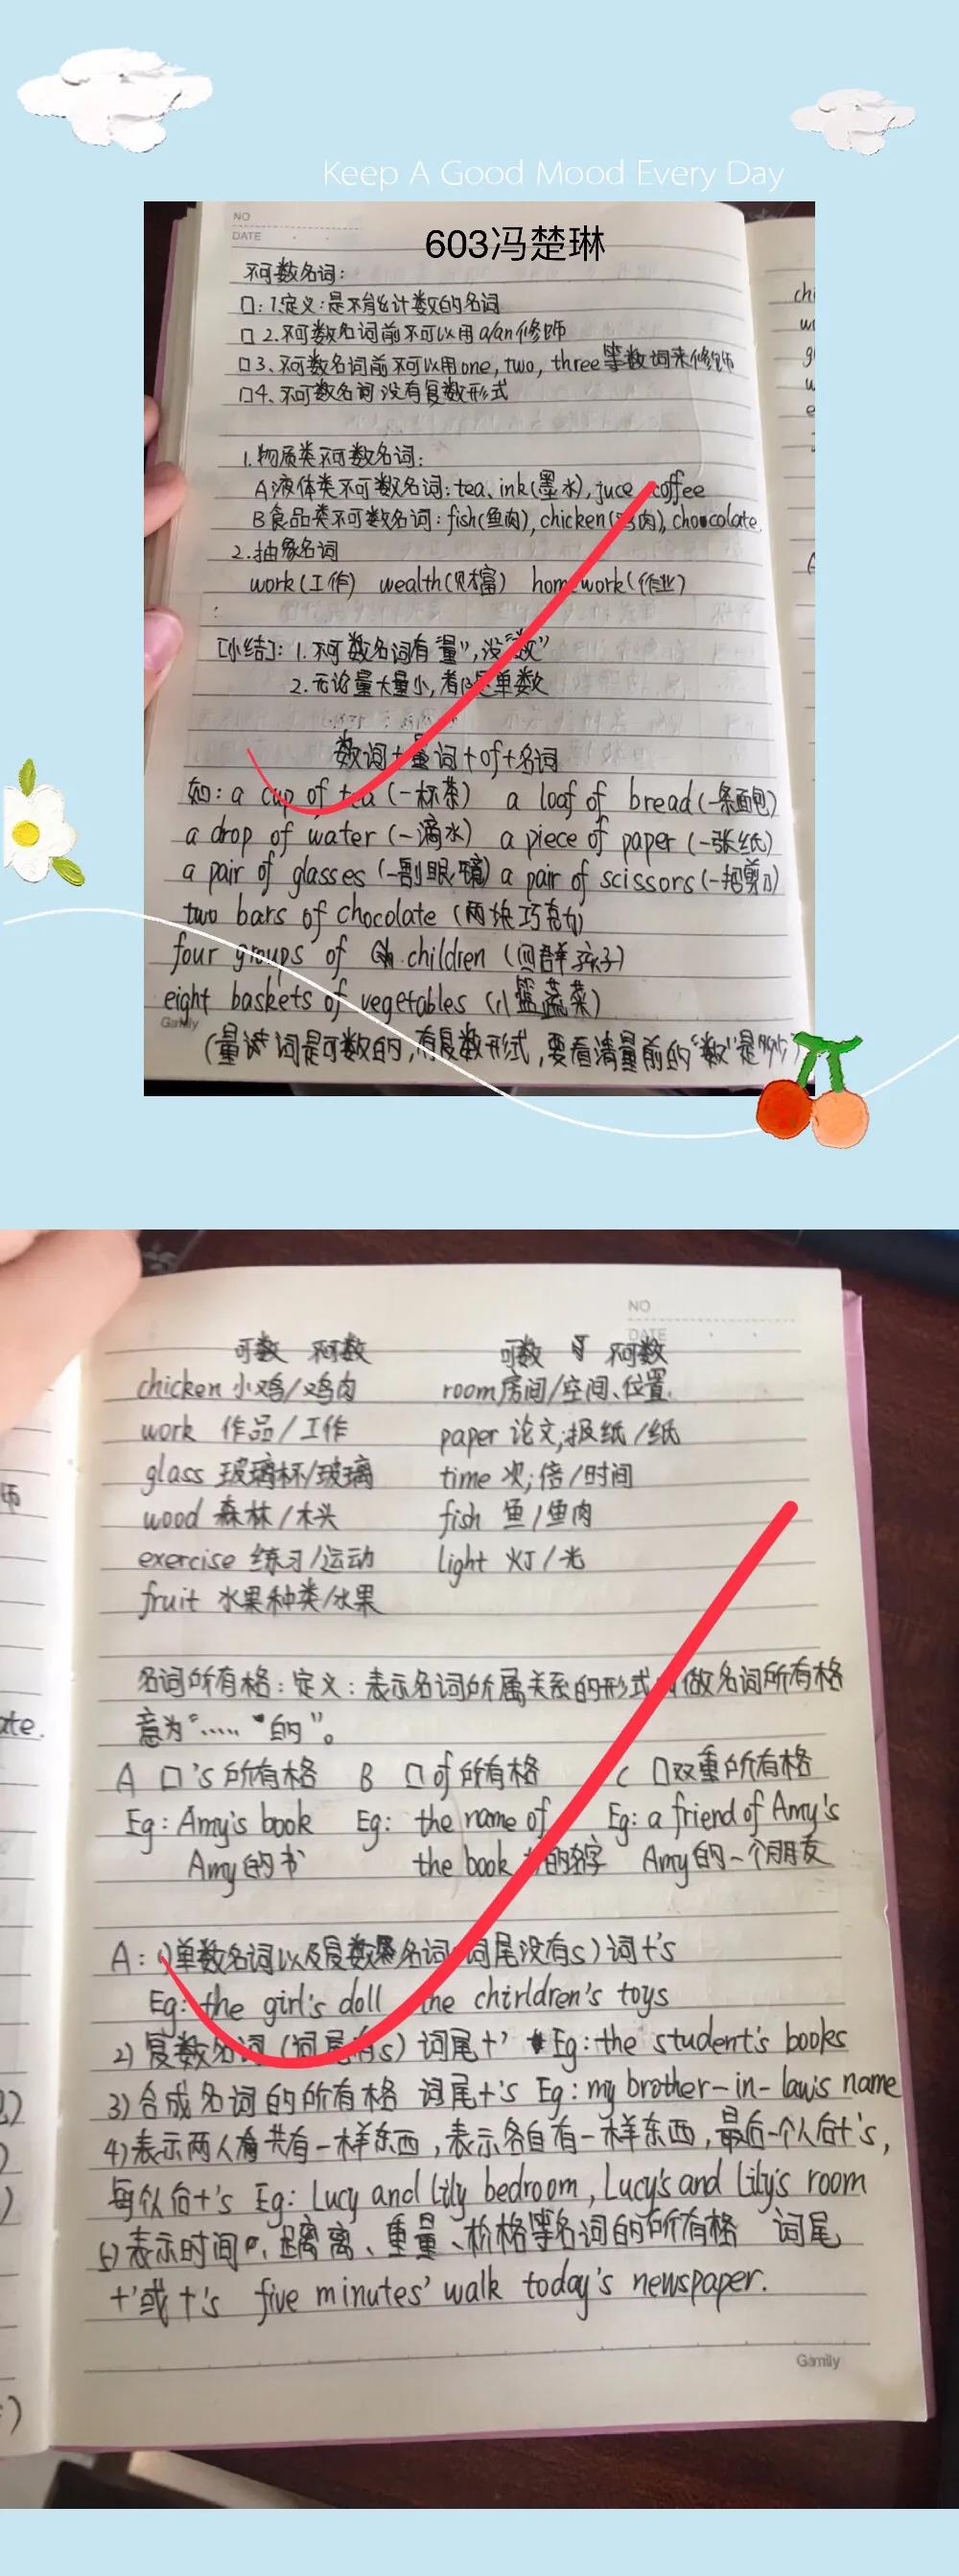 Keep A Good Mood Every Day
NO
DATE
603冯楚琳
不可数名词:
口:1.定义:是不能以计数的名词
口2.不可数名词前不可以用a/an修饰
口3.不可数名词前不可以用one, two, three等数词来修饰
口4.不可数名词没有复数形式
1.物质类不可数名词:
A液体类不可数名词:tea、ink(墨水), juce coffee
B食品类不可数名词:fish(鱼肉), chicken(鸡肉), chocolate.
2.抽象名词
work(工作) wealth(财富) homework(作业)
[小结]:1.不可数名词有"量",没"数"
2.无论量大量小,都是单数
数词+量词+of+名词
如:a cup of tea (一杯茶) a loaf of bread(一条面包)
a drop of water (一滴水) a piece of paper (一张纸)
a pair of glasses (一副眼镜) a pair of scissors(一把剪刀)
two bars of chocolate (两块巧克力)
four groups of children (四群孩子)
eight baskets of vegetables (八篮蔬菜)
Gamily
(量词是可数的,有复数形式,要看清量前的"数"是多少)
NO
DATE
可数 不可数 可数 不可数
chicken 小鸡/鸡肉 room房间/空间、位置.
work 作品/工作 paper 论文;报纸/纸
glass 玻璃杯/玻璃 time 次;倍/时间
wood 森林/木头 fish 鱼/鱼肉
exercise 练习/运动 light 灯/光
fruit 水果种类/水果
名词所有格:定义:表示名词所属关系的形式 做名词所有格
意为"…… 的"。
A 口's所有格 B 口of所有格 C 口双重所有格
Eg: Amy's book Eg: the name of Eg: a friend of Amy's
Amy的书 the book 的名字 Amy的一个朋友
A:1)单数名词以及复数名词(词尾没有s)词+'s
Eg: the girl's doll the chirldren's toys
2)复数名词(词尾有s)词尾+' Eg: the student's books
3)合成名词的所有格 词尾+'s Eg: my brother-in-law's name
4)表示两人共有一样东西,表示各自有一样东西,最后一个人后+'s,
每个人后+'s Eg: Lucy and Lily bedroom, Lucy's and Lily's room
5)表示时间、距离、重量、价格等名词的所有格 词尾
+'或+'s five minutes' walk today's newspaper.
Gamily